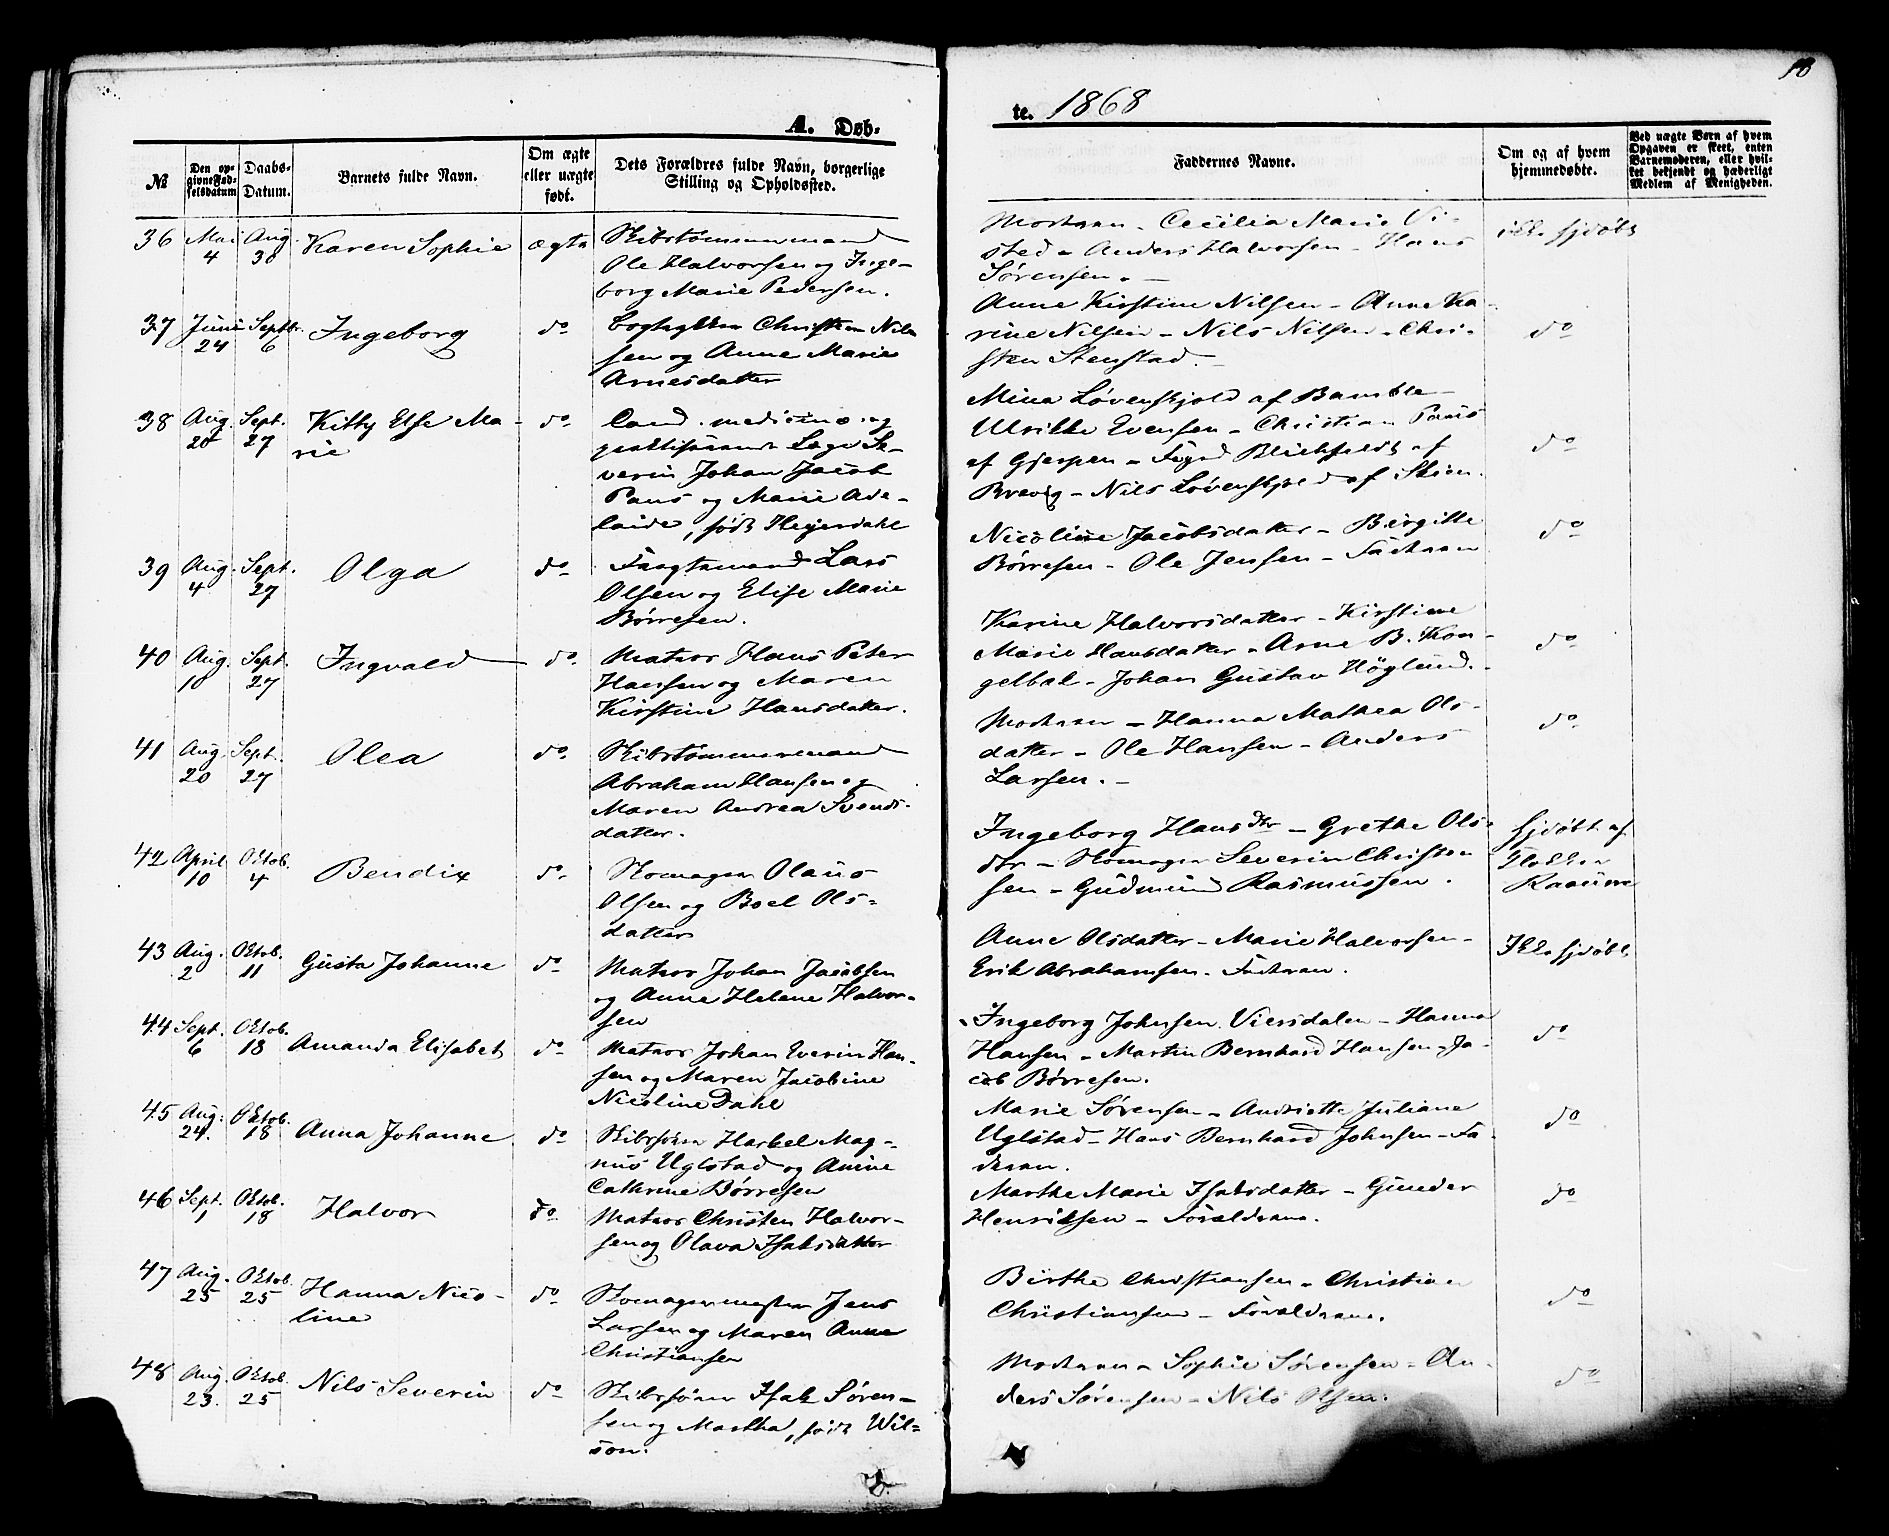 10
A. Døb-
te. 1868
№
Den op-
givneFød-
selsdatum
Daabs-
Datum.
Barnets fulde Navn.
Om ægte
eller uægte
født.
Dets Forældres fulde Navn, borgerlige
Stilling og Opholdssted.
Faddernes Navne.
Om og af hvem
hjemmedøbte.
Ved uægte Børn af hvem
Opgaven er skeet, enten
Barnemoderen, eller hvil-
ket bekjendt og hæderligt
Medlem af Menigheden.
36 Mai 4 Aug. 30 Karen Sophie ægte
Skibstømmermand
Ole Halvorsen og Inge-
borg Marie Pedersen.
Moderen - Cecilia Marie Vi-
sted - Anders Halvorsen - Hans
Sørensen. -
ikke hjdøbt
37 Juni 24 Septbr. 6 Ingeborg do
Christen Nil-
sen og Anne Marie
Arnesdatter
Anne Kirstine Nilsen - Anne Ka-
rine Nilsen - Nils Nilsen - Chri-
sten Stenstad. -
do
38 Aug. 20 Sept. 27 Kitty Else Ma-
rie
do
Cand. medicinæ og
praktiserende Læge Se-
verin Johan Jacob
Paus og Marie Ade-
laide, født Heyerdahl
Mina Løvenskjold af Bamble -
Ulrikke Evensen - Christian Paus
af Gjerpen - Blichfeldt af
Brevig - Nils Løvenskjold af Skien.
do
39 Aug. 4 Sept. 27 Olga do
Fragtemand Lars
Olsen og Elise Marie
Børresen.
Nicoline Jacobsdatter - Birgitte
Børresen - Ole Jensen - Faderen
do
40 Aug. 10 Sept. 27 Ingvald do
Matros Hans Peter
Hansen og Maren
Kirstine Hansdatter.
Karine Halvorsdatter - Kirstine
Marie Hansdatter - Arne B. Kon-
gelbæk - Johan Gustav Höglund. -
do
41 Aug. 20 Sept. 27 Olea do
Skibstømmermand
Abraham Hansen og
Maren Andrea Svends-
datter.
Moderen - Hanna Mathea Ols-
datter - Ole Hansen - Anders
Larsen. -
do
42 April 10 Oktob. 4 Bendix do
Skomager Olaus
Olsen og Boel Ols-
datter
Ingeborg Hansdtr - Grethe Ols-
dtr - Skomager Severin Christen-
sen - Gudmund Rasmussen.
hjdøbt af
43 Aug. 2 Oktob. 11 Gusta Johanne do
Matros Johan Jacobsen
og Anne Helene Halvor-
sen
Anne Olsdatter - Marie Halvorsen -
Erik Abrahamsen - Faderen.
Ikke hjdøbt
44 Sept. 6 Oktob. 18 Amanda Elisabet do
Matros Johan Everin Han-
sen og Maren Jacobine
Nicoline Dahl
Ingeborg Johnsen Viersdalen - Hanna
Hansen - Martin Bernhard Hansen - Ja-
cob Børresen.
do
45 Aug. 24. Oktob. 18 Anna Johanne do
Skibsfører Harbel Mag-
nus Uglstad og Anine
Cathrine Børresen
Marie Sørensen - Andriette Juliane
Uglstad - Hans Bernhard Johnsen - Fa-
deren.
do
46 Sept. 1 Oktob. 18 Halvor do
Matros Christen Halvor-
sen og Olava Isaksdatter
Marthe Marie Isaksdatter - Gunder
Henriksen - Forældrene.
do
47 Aug. 25 Oktob. 25 Hanna Nico-
line
do
Skomagermester Jens
Larsen og Maren Anne
Christiansen
Birthe Christiansen - Christian
Christiansen - Forældrene.
do
48 Aug. 23. Oktob. 25 Nils Severin do
Skibsfører Isak Søren-
sen og Martha, født Wil-
son.
Moderen - Sophie Sørensen - An-
ders Sørensen - Nils Olsen.
do